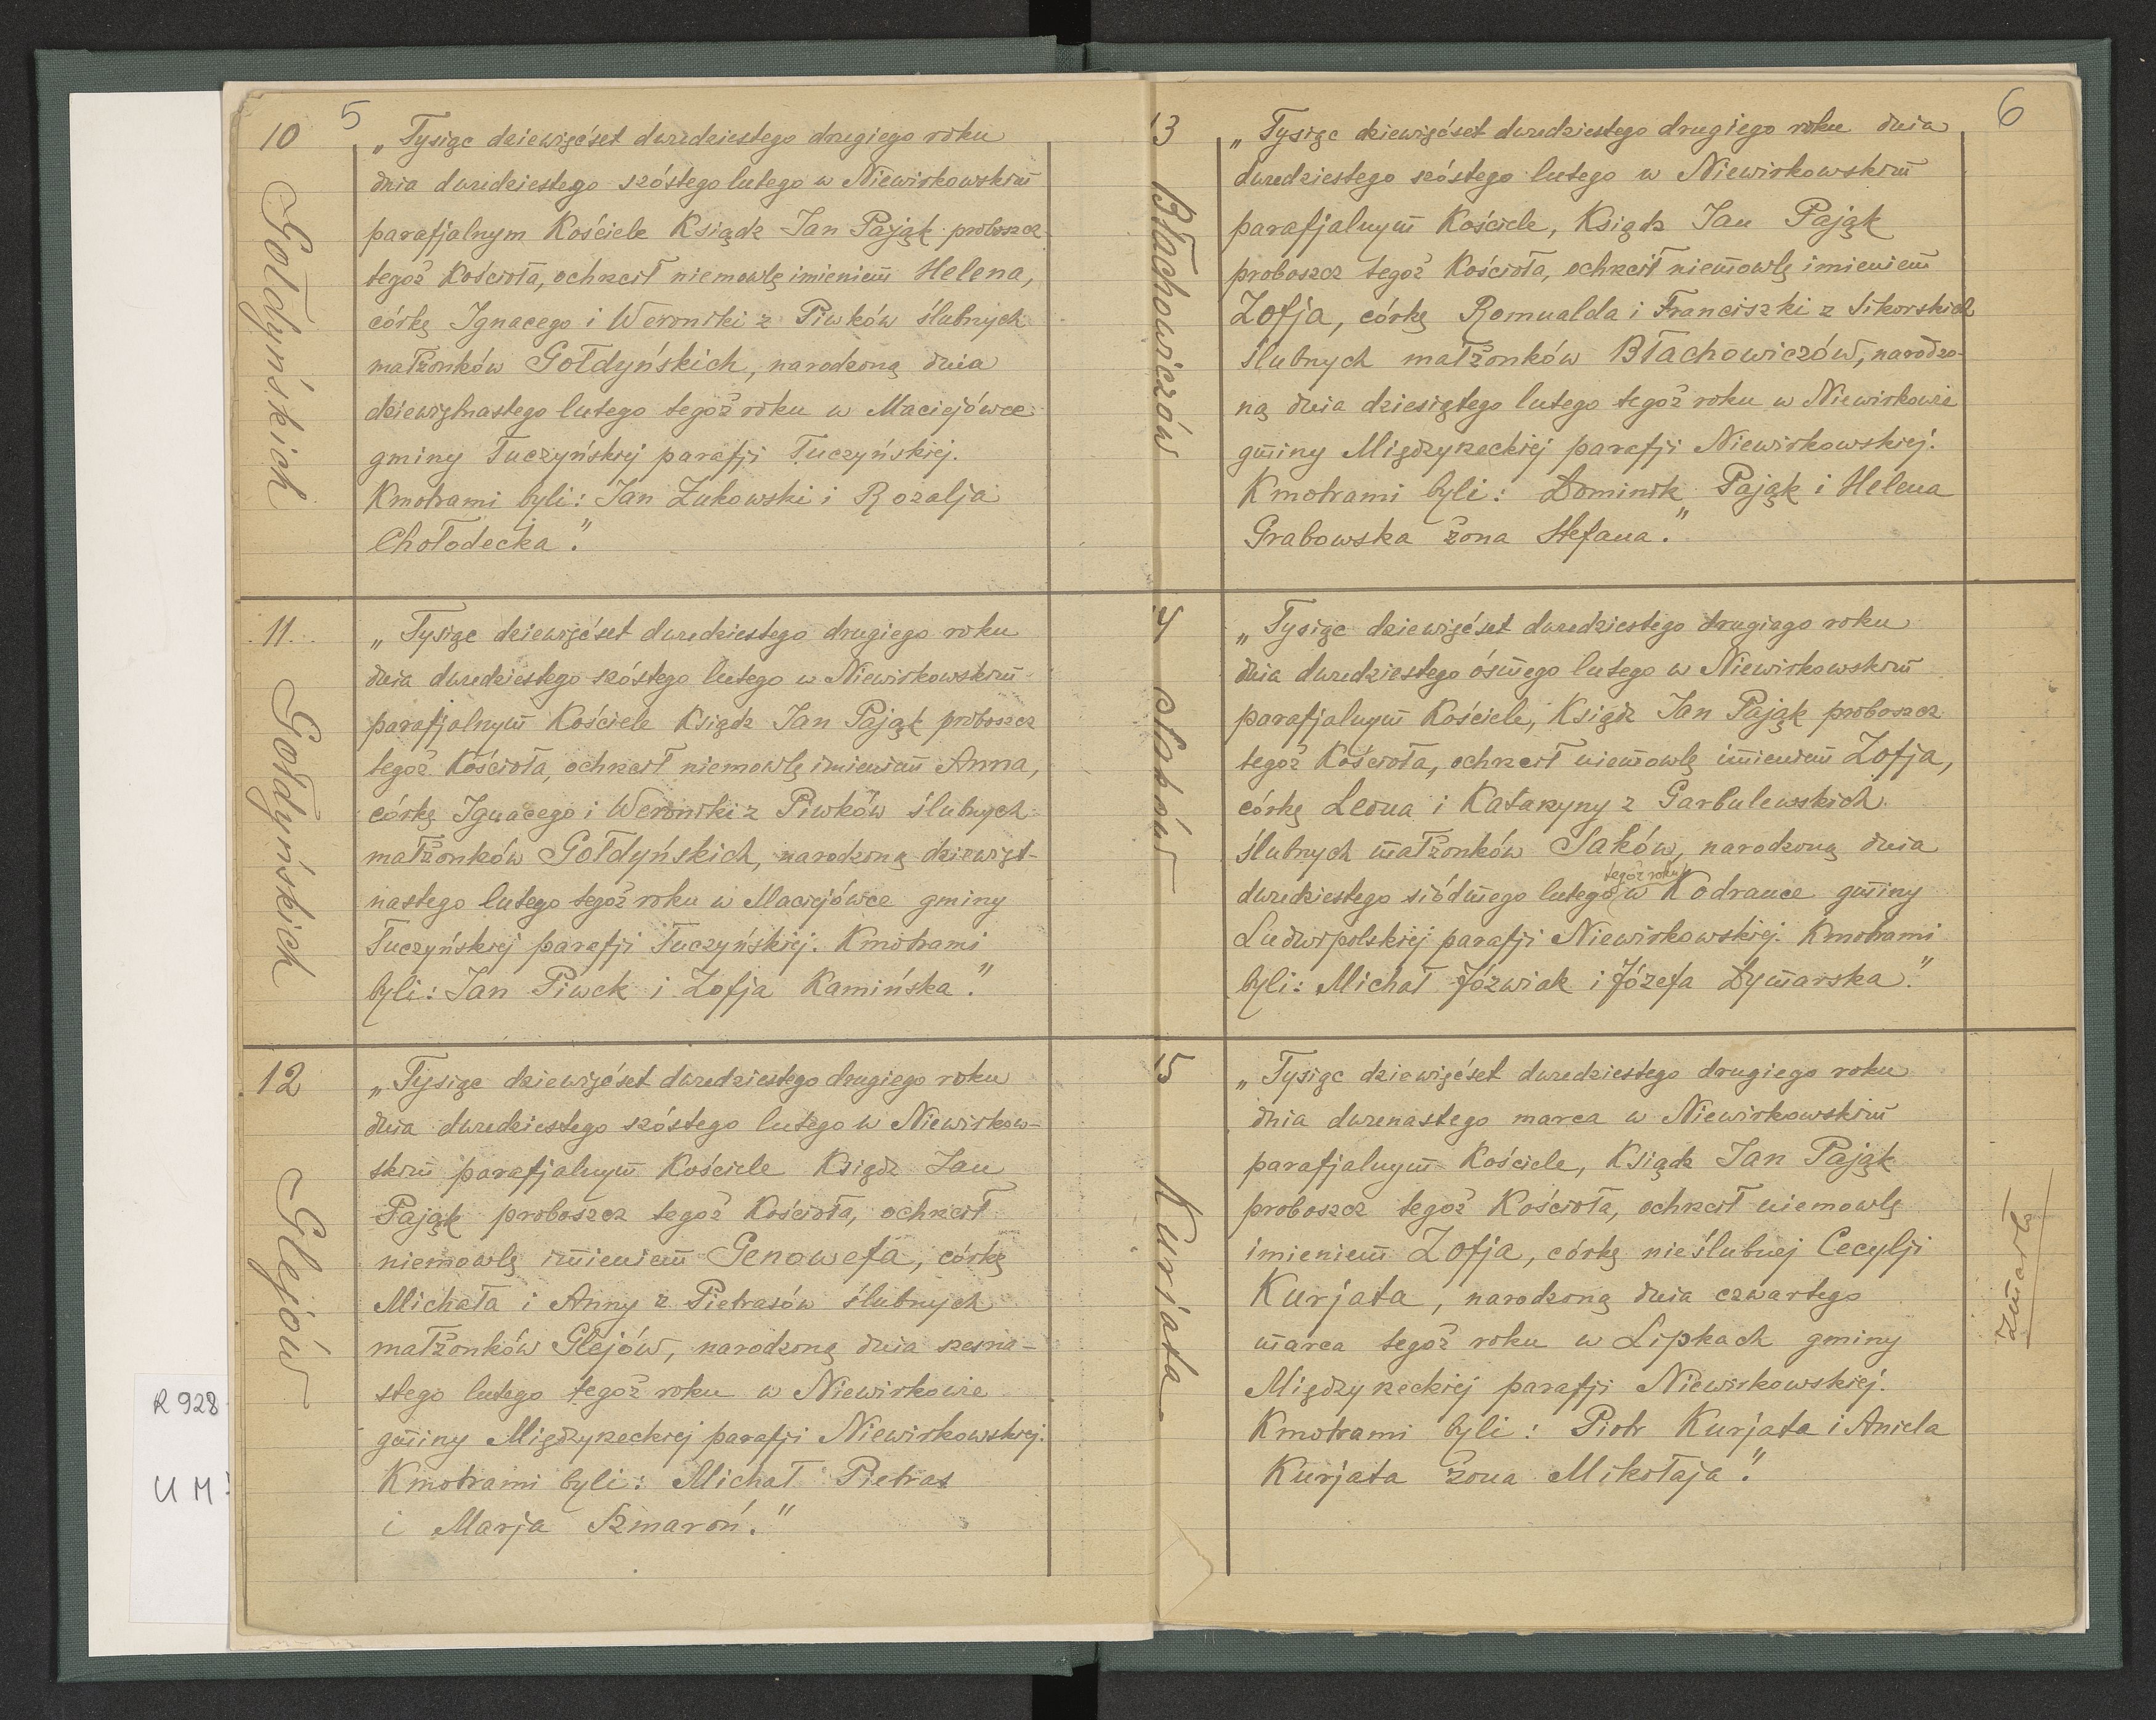 5
10
Gołdyńskich
„Tysiąc dziewięćset dwudziestego drugiego roku
dnia dwudziestego szóstego lutego w Niewirkowskim
parafjalnym Kościele Ksiądz Jan Pająk proboszcz
tegoż Kościoła, ochrzcił niemowlę imieniem Helena,
córkę Ignacego i Weroniki z Piwków ślubnych
małżonków Gołdyńskich, narodzoną dnia
dziewiętnastego lutego tegoż roku w Maciejówce
gminy Tuczyńskiej parafji Tuczyńskiej.
Kmotrami byli: Jan Żukowski i Rozalja
Chołodecka."
11.
Gołdyńskich
„Tysiąc dziewięćset dwudziestego drugiego roku
dnia dwudziestego szóstego lutego w Niewirkowskim
parafjalnym Kościele Ksiądz Jan Pająk proboszcz
tegoż Kościoła, ochrzcił niemowlę imieniem Anna,
córkę Ignacego i Weroniki z Piwków ślubnych
małżonków Gołdyńskich, narodzoną dziewięt-
nastego lutego tegoż roku w Maciejówce gminy
Tuczyńskiej parafji Tuczyńskiej. Kmotrami
byli: Jan Piwek i Zofja Kamińska."
12
Glejów
„Tysiąc dziewięćset dwudziestego drugiego roku
dnia dwudziestego szóstego lutego w Niewirkow-
skim parafjalnym Kościele Ksiądz Jan
Pająk proboszcz tegoż Kościoła, ochrzcił
niemowlę imieniem Genowefa, córkę
Michała i Anny z Pietrasów ślubnych
małżonków Glejów, narodzoną dnia szesna-
stego lutego tegoż roku w Niewirkowie
gminy Międzyrzeckiej parafji Niewirkowskiej.
Kmotrami byli: Michał Pietras
i Marja Szmaroń."
R 928
U M
6
13
Błachowiczów
„Tysiąc dziewięćset dwudziestego drugiego roku dnia
dwudziestego szóstego lutego w Niewirkowskim
parafjalnym Kościele, Ksiądz Jan Pająk
proboszcz tegoż Kościoła, ochrzcił niemowlę imieniem
Zofja, córkę Romualda i Franciszki z Sikorskich
ślubnych małżonków Błachowiczów, narodzo-
ną dnia dziesiątego lutego tegoż roku w Niewirkowie
gminy Międzyrzeckiej parafji Niewirkowskiej.
Kmotrami byli: Dominik Pająk i Helena
Grabowska żona Stefana."
4
Saków
„Tysiąc dziewięćset dwudziestego drugiego roku
dnia dwudziestego ósmego lutego w Niewirkowskim
parafjalnym Kościele, Ksiądz Jan Pająk proboszcz
tegoż Kościoła, ochrzcił niemowlę imieniem Zofja,
córkę Leona i Katarzyny z Garbulewskich
ślubnych małżonków Saków, narodzoną dnia
tegoż roku
dwudziestego siódmego lutego w Kodrance gminy
Ludwipolskiej parafji Niewirkowskiej. Kmotrami
byli: Michał Józwiak i Józefa Dymarska."
5
Kurjata
„Tysiąc dziewięćset dwudziestego drugiego roku
dnia dwunastego marca w Niewirkowskim
parafjalnym Kościele, Ksiądz Jan Pająk
proboszcz tegoż Kościoła, ochrzcił niemowlę
imieniem Zofja, córkę nieślubnej Cecylji
Kurjata, narodzoną dnia czwartego
marca tegoż roku w Lipkach gminy
Międzyrzeckiej parafji Niewirkowskiej.
Kmotrami byli: Piotr Kurjata i Aniela
Kurjata żona Mikołaja."
zmarła